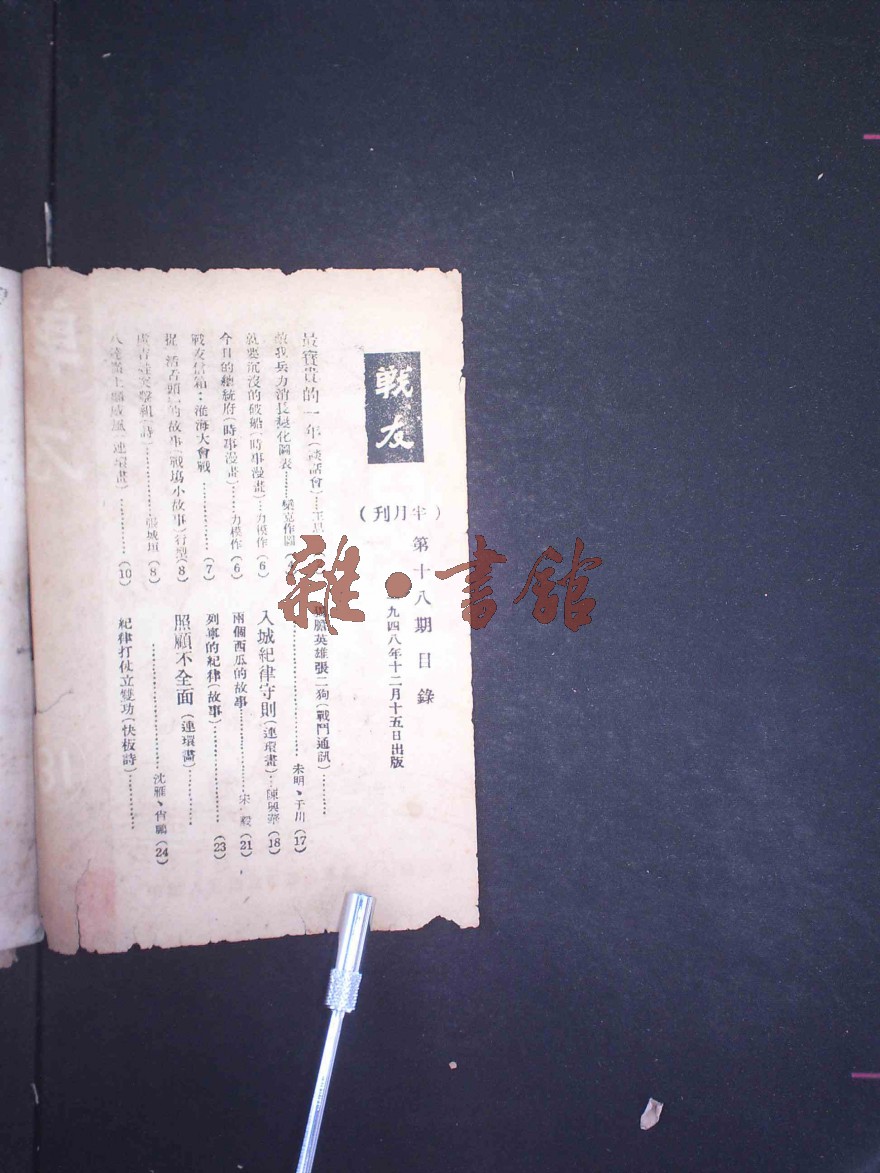 戰友
（半月刊）
第十八期目錄
九四八年十二月十五日出版
最寶貴的一年（談話會）…王
我兵力消長變化圖表……作圖
就要沉沒的破船（時事漫畫）…力模作（6）
今日的總統府（時事漫畫）……力模作（6）
戰友信箱：淮海大會戰…………（7）
捉「活舌頭」的故事（戰塲小故事）行型（8）
突擊組（詩）…………張城垣（8）
連環畫）…………（10）
胆英雄張二狗（戰鬥通訊）……
……………朱明、于川（17）
入城紀律守則（連環畫）…陳興華（18）
兩個西瓜的故事…………宋毅（21）
列寧的紀律（故事）…………（23）
照顧不全面（連環畫）…………
…………沈雁、肖鵬（24）
紀律打仗立雙功（快板詩）…………
雜·書館